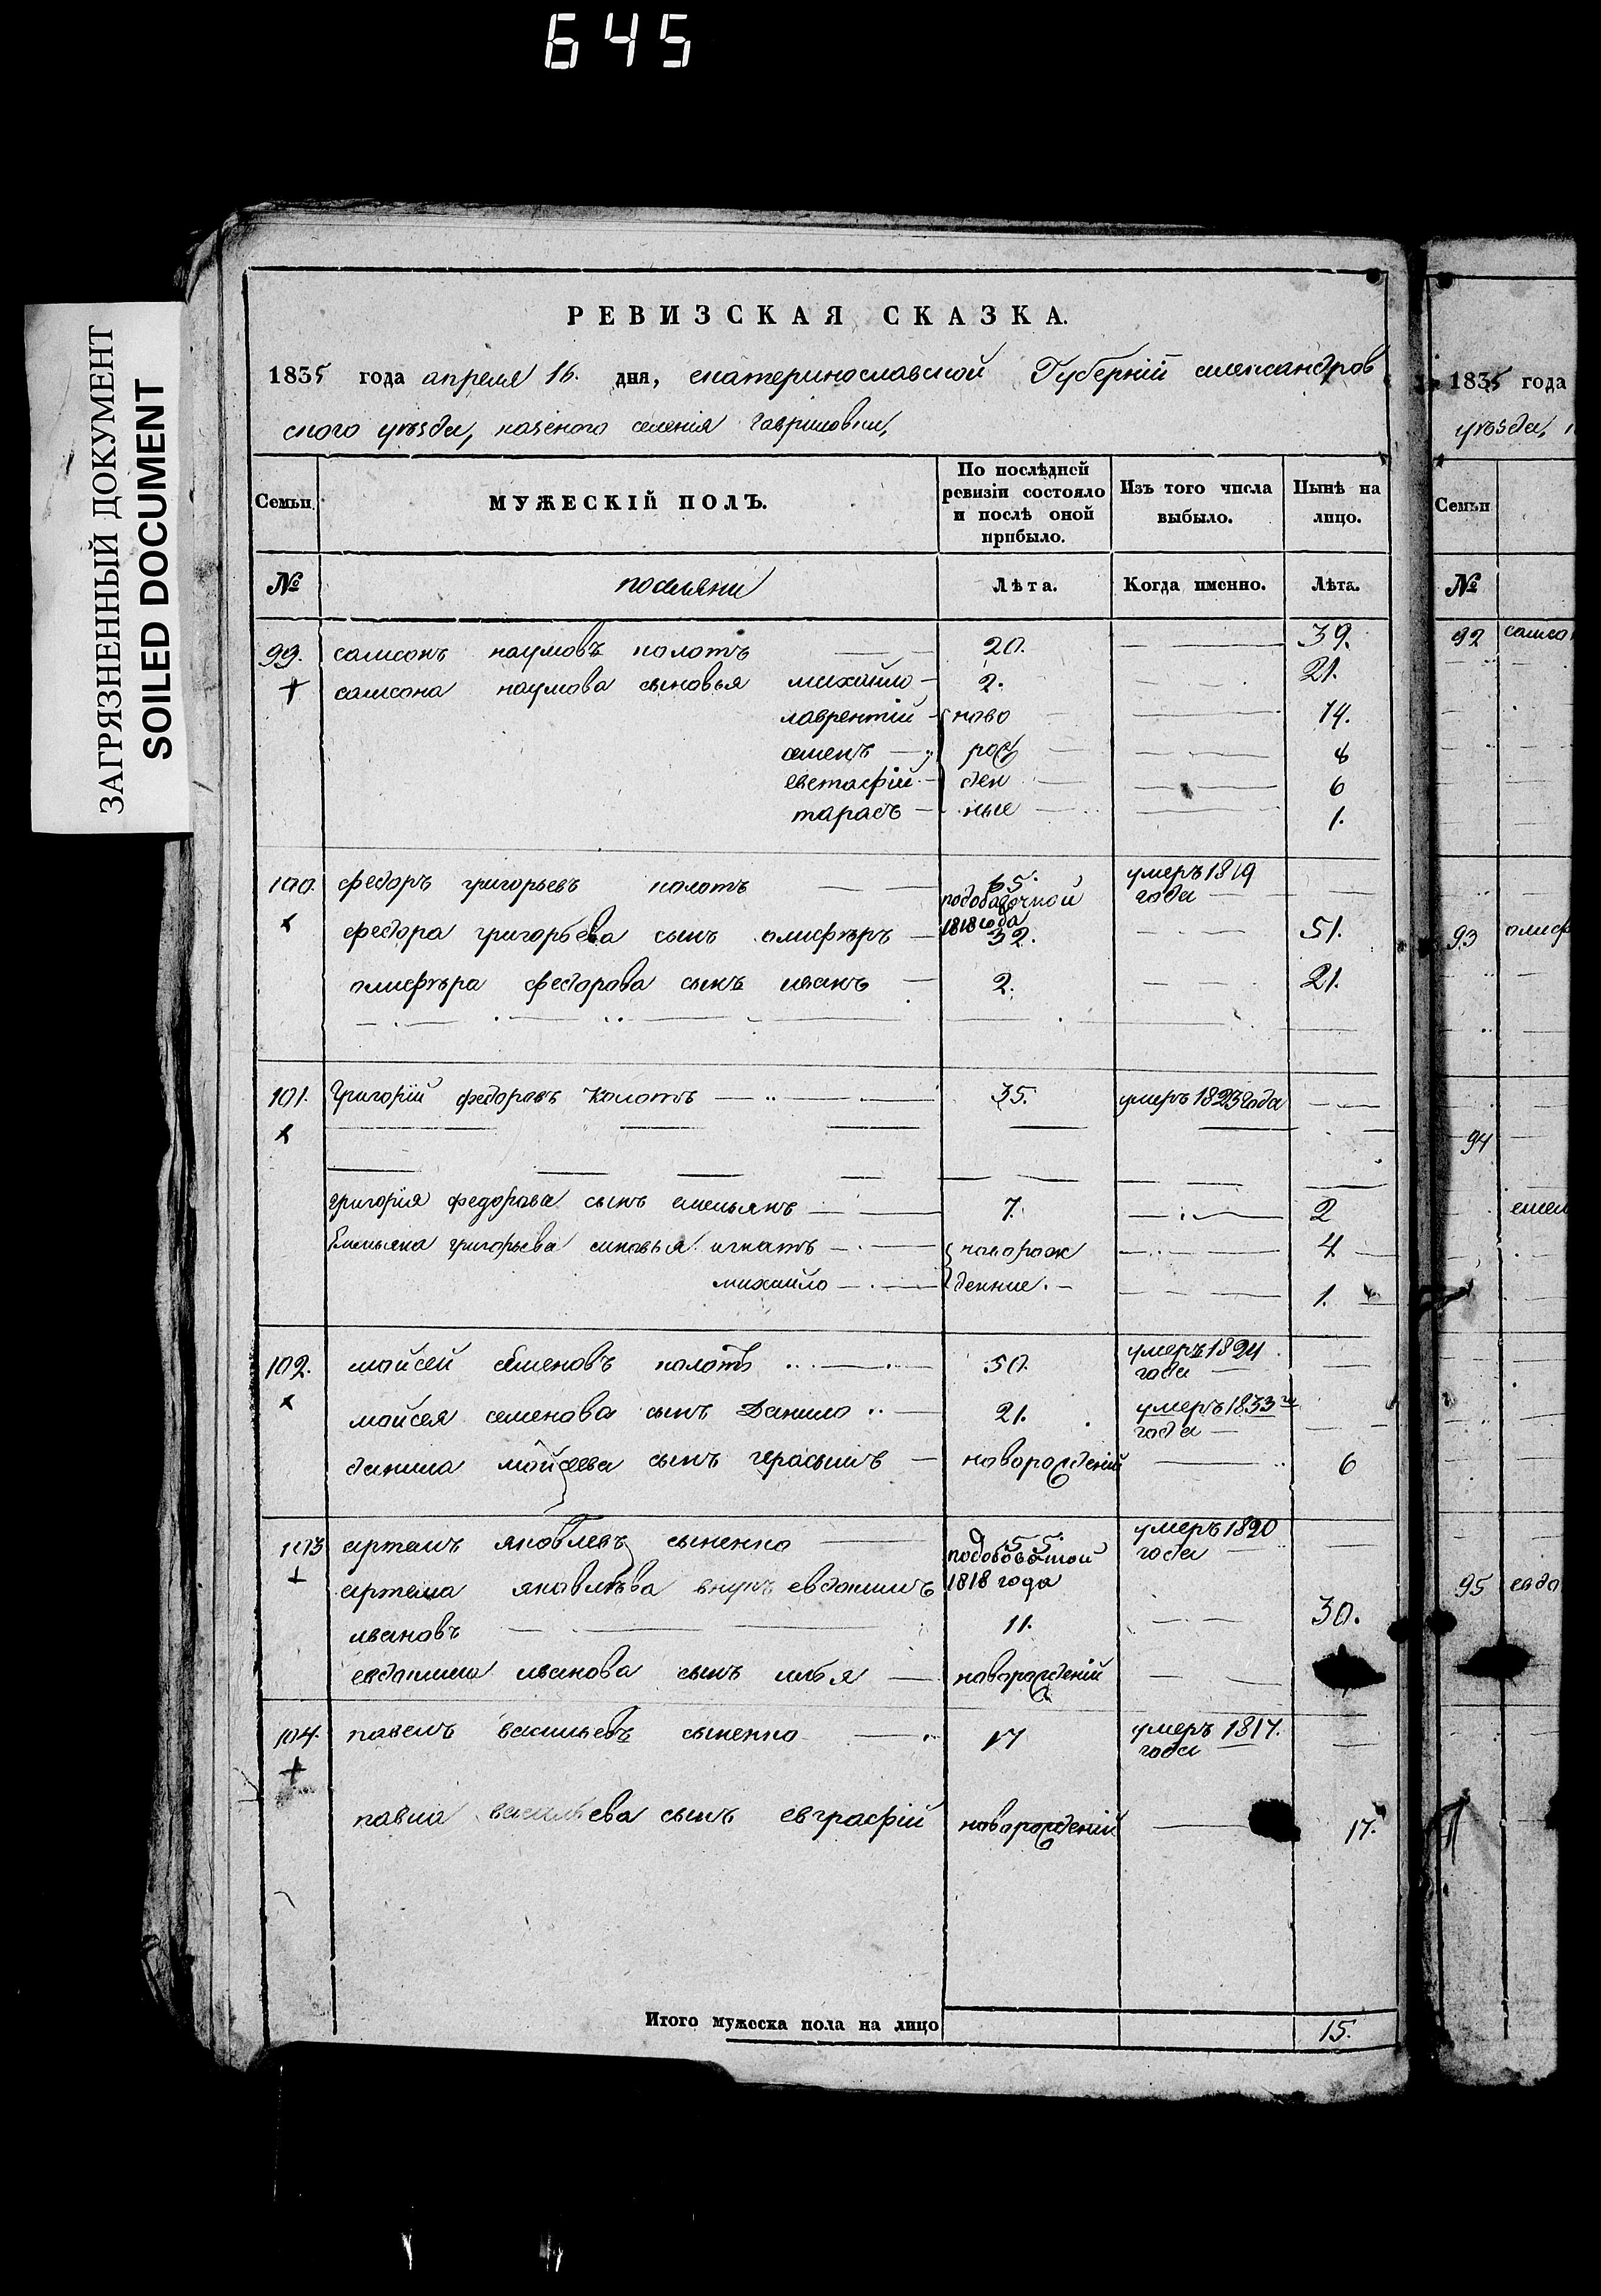 645
ЗАГРЯЗНЕННЫЙ ДОКУМЕНТ
SOILED DOCUMENT
РЕВИЗСКАЯ СКАЗКА.
1835 года апреля 16. дня, екатеринославской Губерніи александров
ского уѣзда, казеного селения Гавриловки,
Семьи МУЖЕСКІЙ ПОЛЪ. По послѣдней ревизіи состояло и послѣ оной прибыло. Изъ того числа выбыло. Нынѣ на лицо.
№ поселяни Лѣта. Когда именно. Лѣта.
99. самсонъ наумовъ колотъ 20. 39.
самсона наумова сыновья михайло 2. 21.
лаврентій ново 14.
семенъ рож 8
евстафій ден 6
тарасъ ные 1.
100. федоръ григорьевъ колотъ 65. умеръ 1819
подобавочной года
1818 года
федора григорьева сынъ олисфѣръ 32. 51.
олисфѣра федорова сынъ иванъ 2. 21.
101. Григорій федоровъ Колотъ 35. умеръ 1823 года
григория федорова сынъ емельянъ 7. 2
Емельяна григорьева синовья игнатъ новорож 4
михаило денние. 1.
102. мойсей семеновъ колотъ 50. умеръ 1824
года
мойсея семенова сынъ Данило 21. умеръ 1833
года
данила мойсеева сынъ герасымъ новорожденій 6
103 артемъ яковлевъ сыненко 55. умеръ 1820
подобовочной года
артема яковлѣва внукъ евдокимъ 1818 года
ивановъ 11. 30.
евдокима иванова сынъ илья новорожденій
104. павелъ васильевъ сыненко 17 умеръ 1817.
года
павла васильева сынъ евграфій новорожденій 17.
Итого мужеска пола на лицо 15.
1835 года
уѣзда,
Семьи
№
92 самсо
93 олисф
94
емел
95 евдо